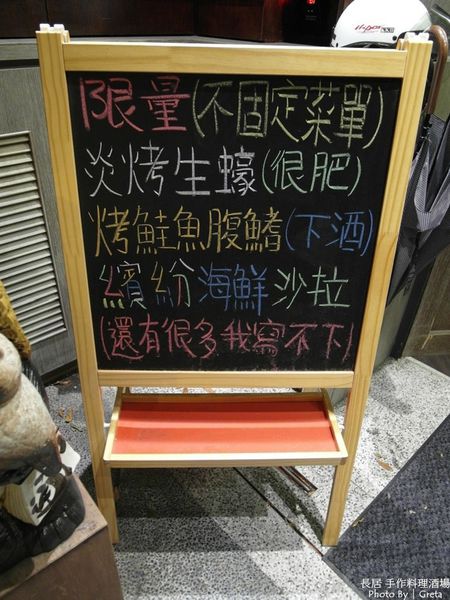 限量(不固定菜單)
炎烤生蠔(很肥)
烤鮭魚腹鰭(下酒)
繽紛海鮮沙拉
(還有很多我寫不下)
長居 手作料理酒場
Photo By | Greta